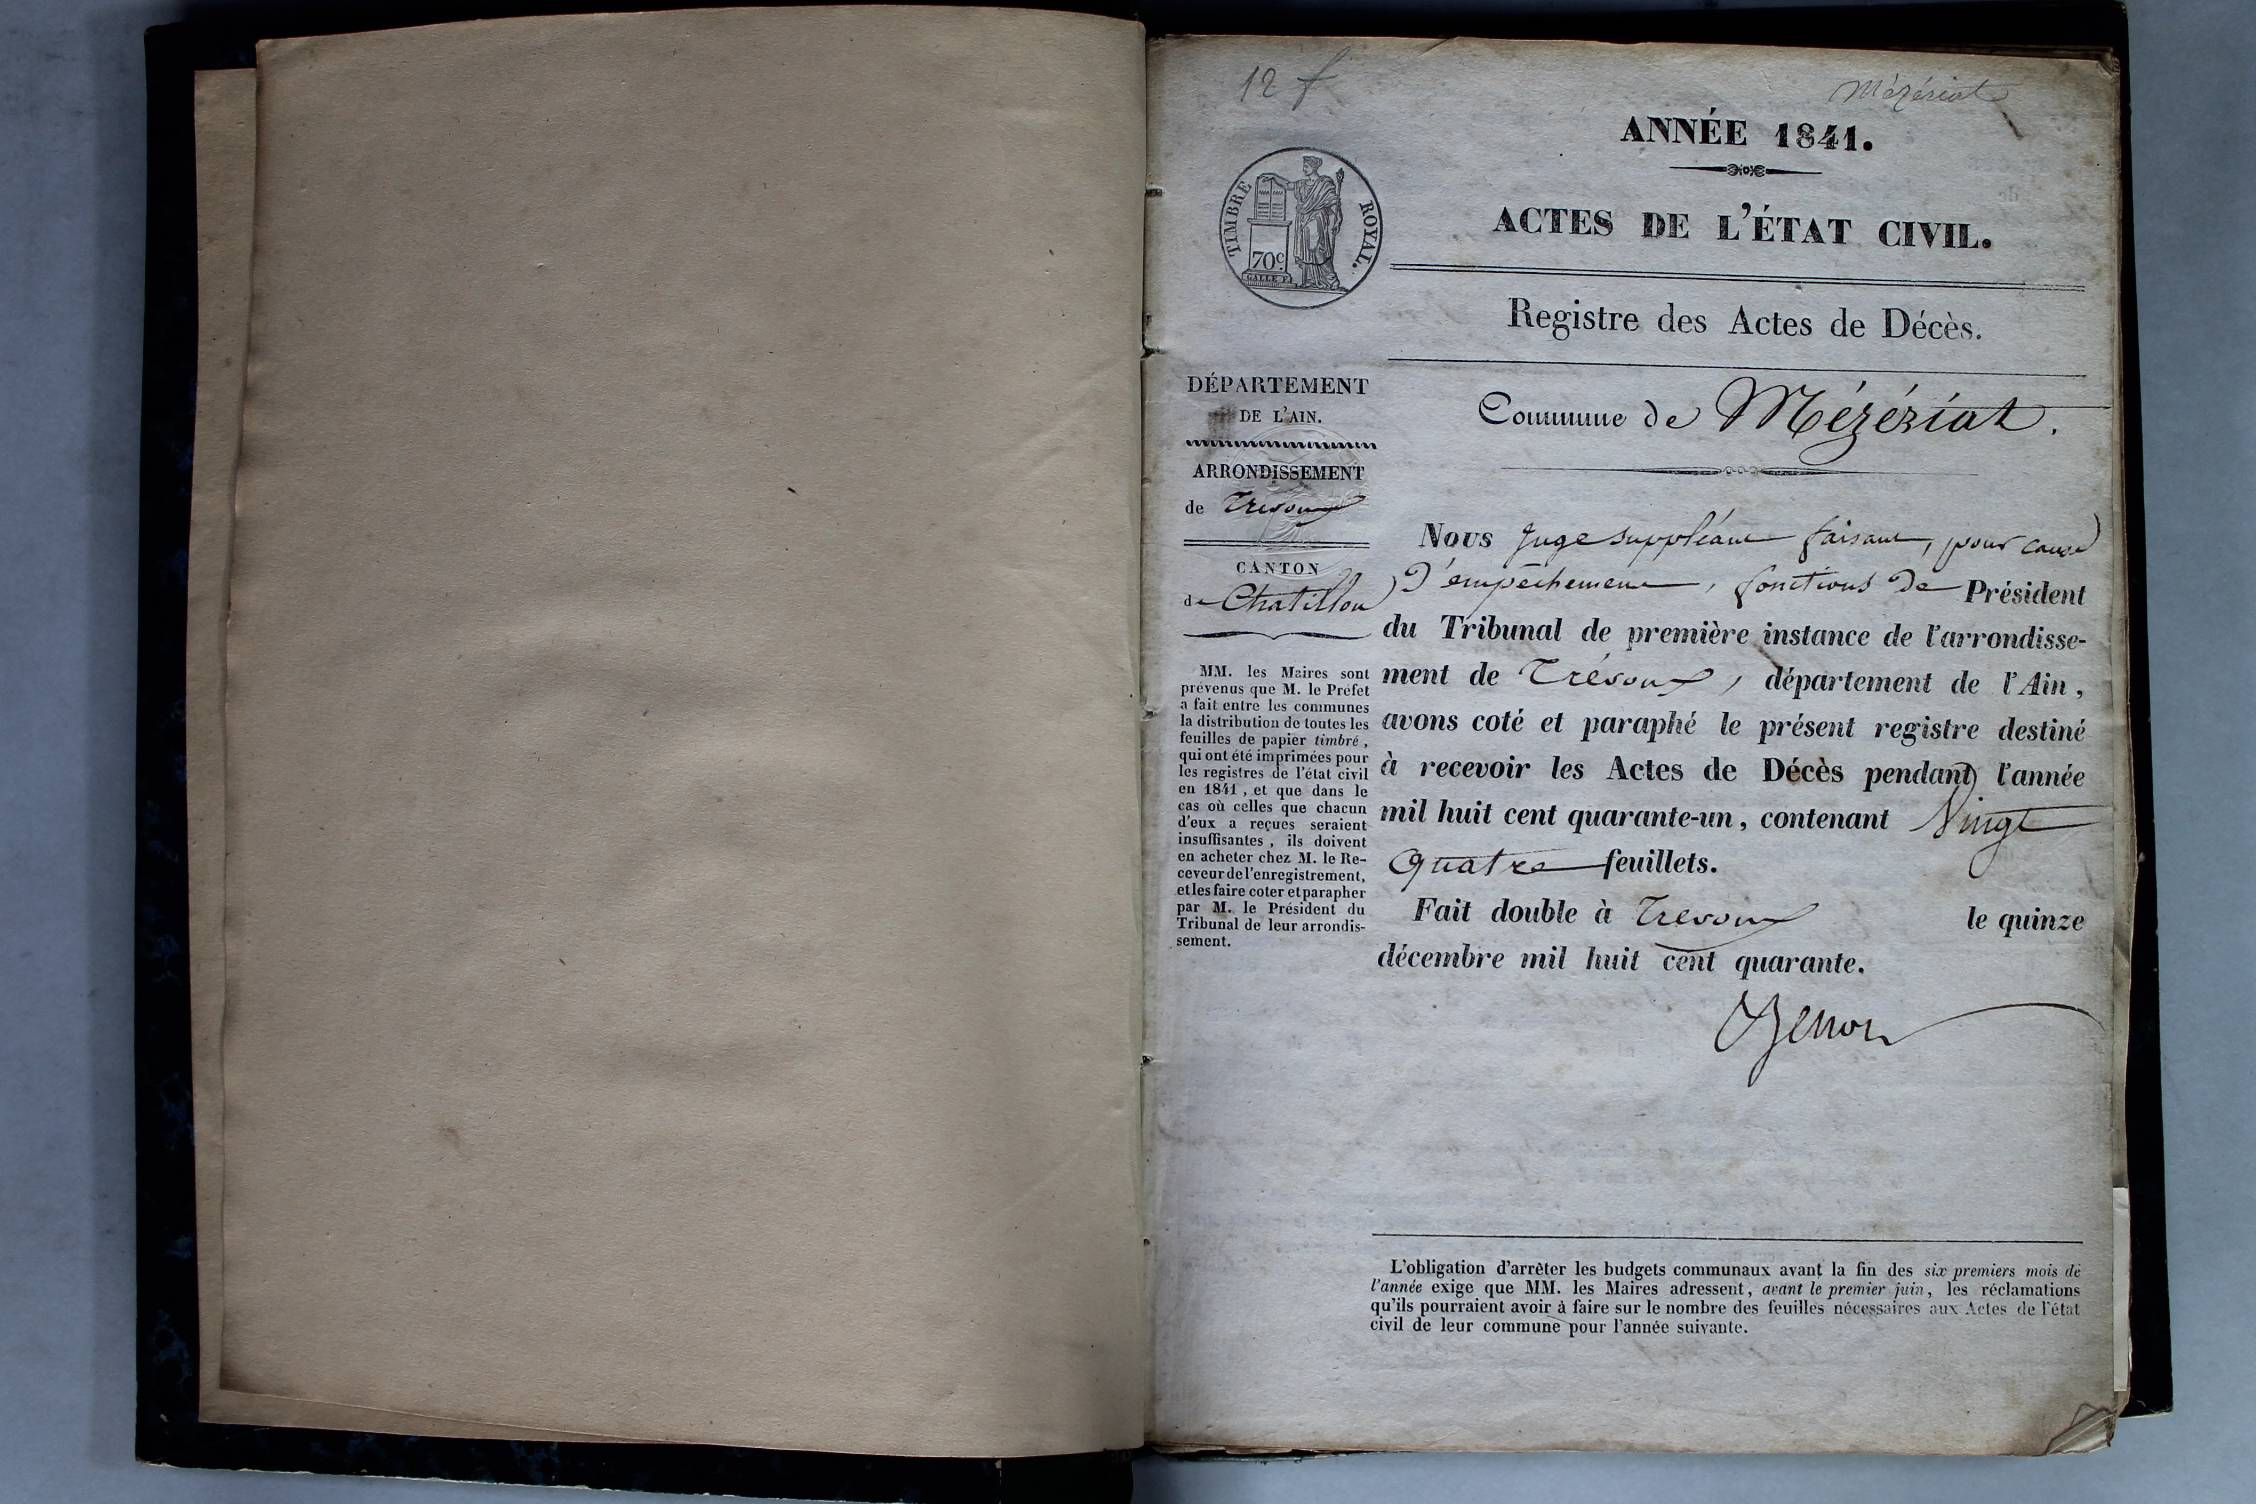 12 f
Mézériat
ANNÉE 1841.
TIMBRE ROYAL.
70c
GALLE F.
ACTES DE L'ÉTAT CIVIL.
Registre des Actes de Décès.
Commune de Mézériat.
DÉPARTEMENT
DE L'AIN.
ARRONDISSEMENT
de Trevoux
CANTON
de Chatillon
MM. les Maires sont
prévenus que M. le Préfet
a fait entre les communes
la distribution de toutes les
feuilles de papier timbré,
qui ont été imprimées pour
les registres de l'état civil
en 1841, et que dans le
cas où celles que chacun
d'eux a reçues seraient
insuffisantes, ils doivent
en acheter chez M. le Re-
ceveur de l'enregistrement,
et les faire coter et parapher
par M. le Président du
Tribunal de leur arrondis-
sement.
Nous Juge suppléant faisant, pour cause
d'empêchement, fonctions de Président
du Tribunal de première instance de l'arrondisse-
ment de Trévoux, département de l'Ain,
avons coté et paraphé le présent registre destiné
à recevoir les Actes de Décès pendant l'année
mil huit cent quarante-un, contenant Vingt
quatre feuillets.
Fait double à Trevoux le quinze
décembre mil huit cent quarante.
L'obligation d'arrêter les budgets communaux avant la fin des six premiers mois de
l'année exige que MM. les Maires adressent, avant le premier juin, les réclamations
qu'ils pourraient avoir à faire sur le nombre des feuilles nécessaires aux Actes de l'état
civil de leur commune pour l'année suivante.